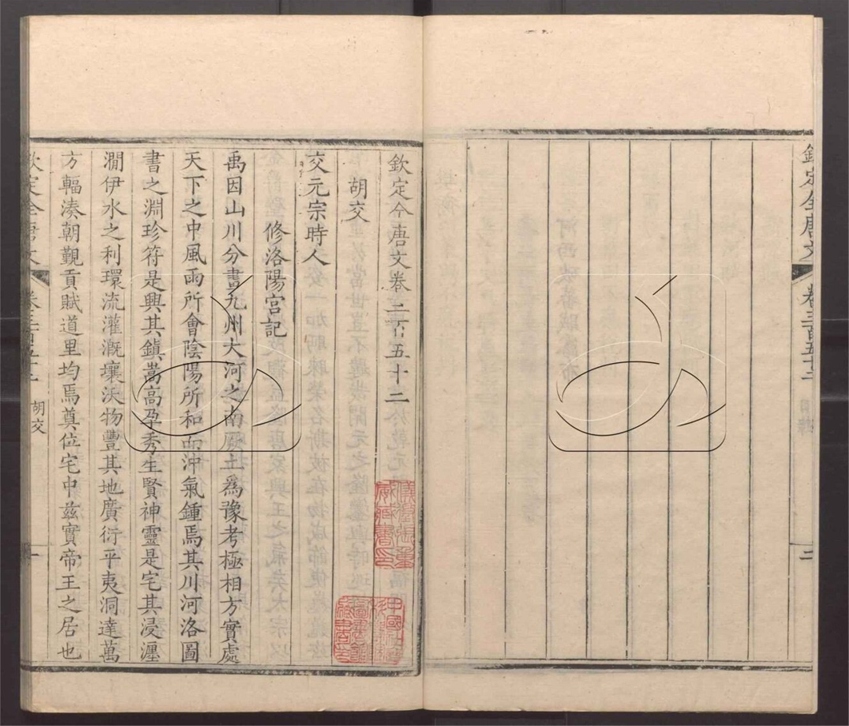 欽定全唐文 卷三百五十二 目錄 二
欽定全唐文卷三百五十二
胡交
交元宗時人
修洛陽宮記
禹因山川分畫九州大河之南厥土爲豫考極相方實處
天下之中風雨所會陰陽所和而沖氣鍾焉其川河洛圖
書之淵珍符是興其鎮嵩高孕秀生賢神靈是宅其浸瀍
澗伊水之利環流灌漑壤沃物豐其地廣衍平夷洞達萬
方輻湊朝覲貢賦道里均焉奠位宅中茲實帝王之居也
欽定全唐文 卷三百五十二 胡交 一